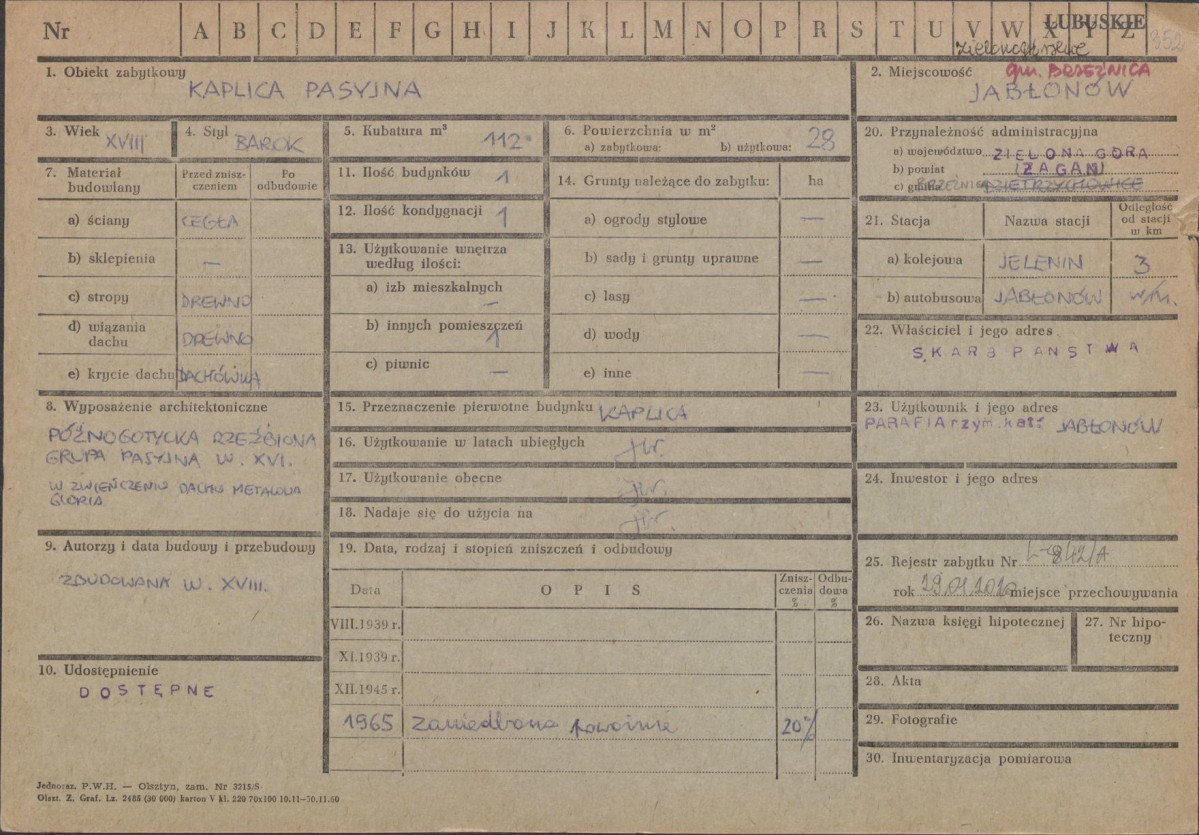 Nr A B C D E F G H I J K L M N O P R S T U V W X Y Z
LUBUSKIE
352
1. Obiekt zabytkowy
KAPLICA PASYJNA
2. Miejscowość gm. BRZEŹNICA
JABŁONÓW
3. Wiek XVIII
4. Styl BAROK
5. Kubatura m³ 112
6. Powierzchnia w m²
a) zabytkowa: b) użytkowa: 28
20. Przynależność administracyjna
a) województwo ZIELONA GÓRA
b) powiat (ŻAGAŃ)
c) gmina BRZEŹNICA DZIETRZYCHOWICE
7. Materiał budowlany
Przed zniszczeniem
Po odbudowie
a) ściany CEGŁA
b) sklepienia —
c) stropy DREWNO
d) wiązania dachu DREWNO
e) krycie dachu DACHÓWKA
11. Ilość budynków 1
12. Ilość kondygnacji 1
13. Użytkowanie wnętrza
według ilości:
a) izb mieszkalnych —
b) innych pomieszczeń 1
c) piwnic —
14. Grunty należące do zabytku: ha
a) ogrody stylowe —
b) sady i grunty uprawne —
c) lasy —
d) wody —
e) inne —
21. Stacja Nazwa stacji Odległość od stacji w km
a) kolejowa JELENIN 3
b) autobusowa JABŁONÓW w/m.
22. Właściciel i jego adres
SKARB PAŃSTWA
8. Wyposażenie architektoniczne
PÓŹNOGOTYCKA RZEŹBIONA
GRUPA PASYJNA W. XVI.
W ZWIEŃCZENIU DACHU METALOWA
GLORIA
15. Przeznaczenie pierwotne budynku KAPLICA
16. Użytkowanie w latach ubiegłych jw.
17. Użytkowanie obecne jw.
18. Nadaje się do użycia na jw.
23. Użytkownik i jego adres
PARAFIA rzym. kat. JABŁONÓW
24. Inwestor i jego adres
9. Autorzy i data budowy i przebudowy
ZBUDOWANA W. XVIII.
10. Udostępnienie
DOSTĘPNE
19. Data, rodzaj i stopień zniszczeń i odbudowy
Data OPIS Zniszczenia % Odbudowa %
VIII.1939 r.
XI.1939 r.
XII.1945 r.
1965 Zaniedbana poważnie 20%
25. Rejestr zabytku Nr L-842/A
rok 29.01.2020 miejsce przechowywania
26. Nazwa księgi hipotecznej
27. Nr hipoteczny
28. Akta
29. Fotografie
30. Inwentaryzacja pomiarowa
Jednoraz. P.W.H. — Olsztyn, zam. Nr 3215/S
Olszt. Z. Graf. Lz. 2485 (30 000) karton V kl. 220 70x100 10.11—30.11.60